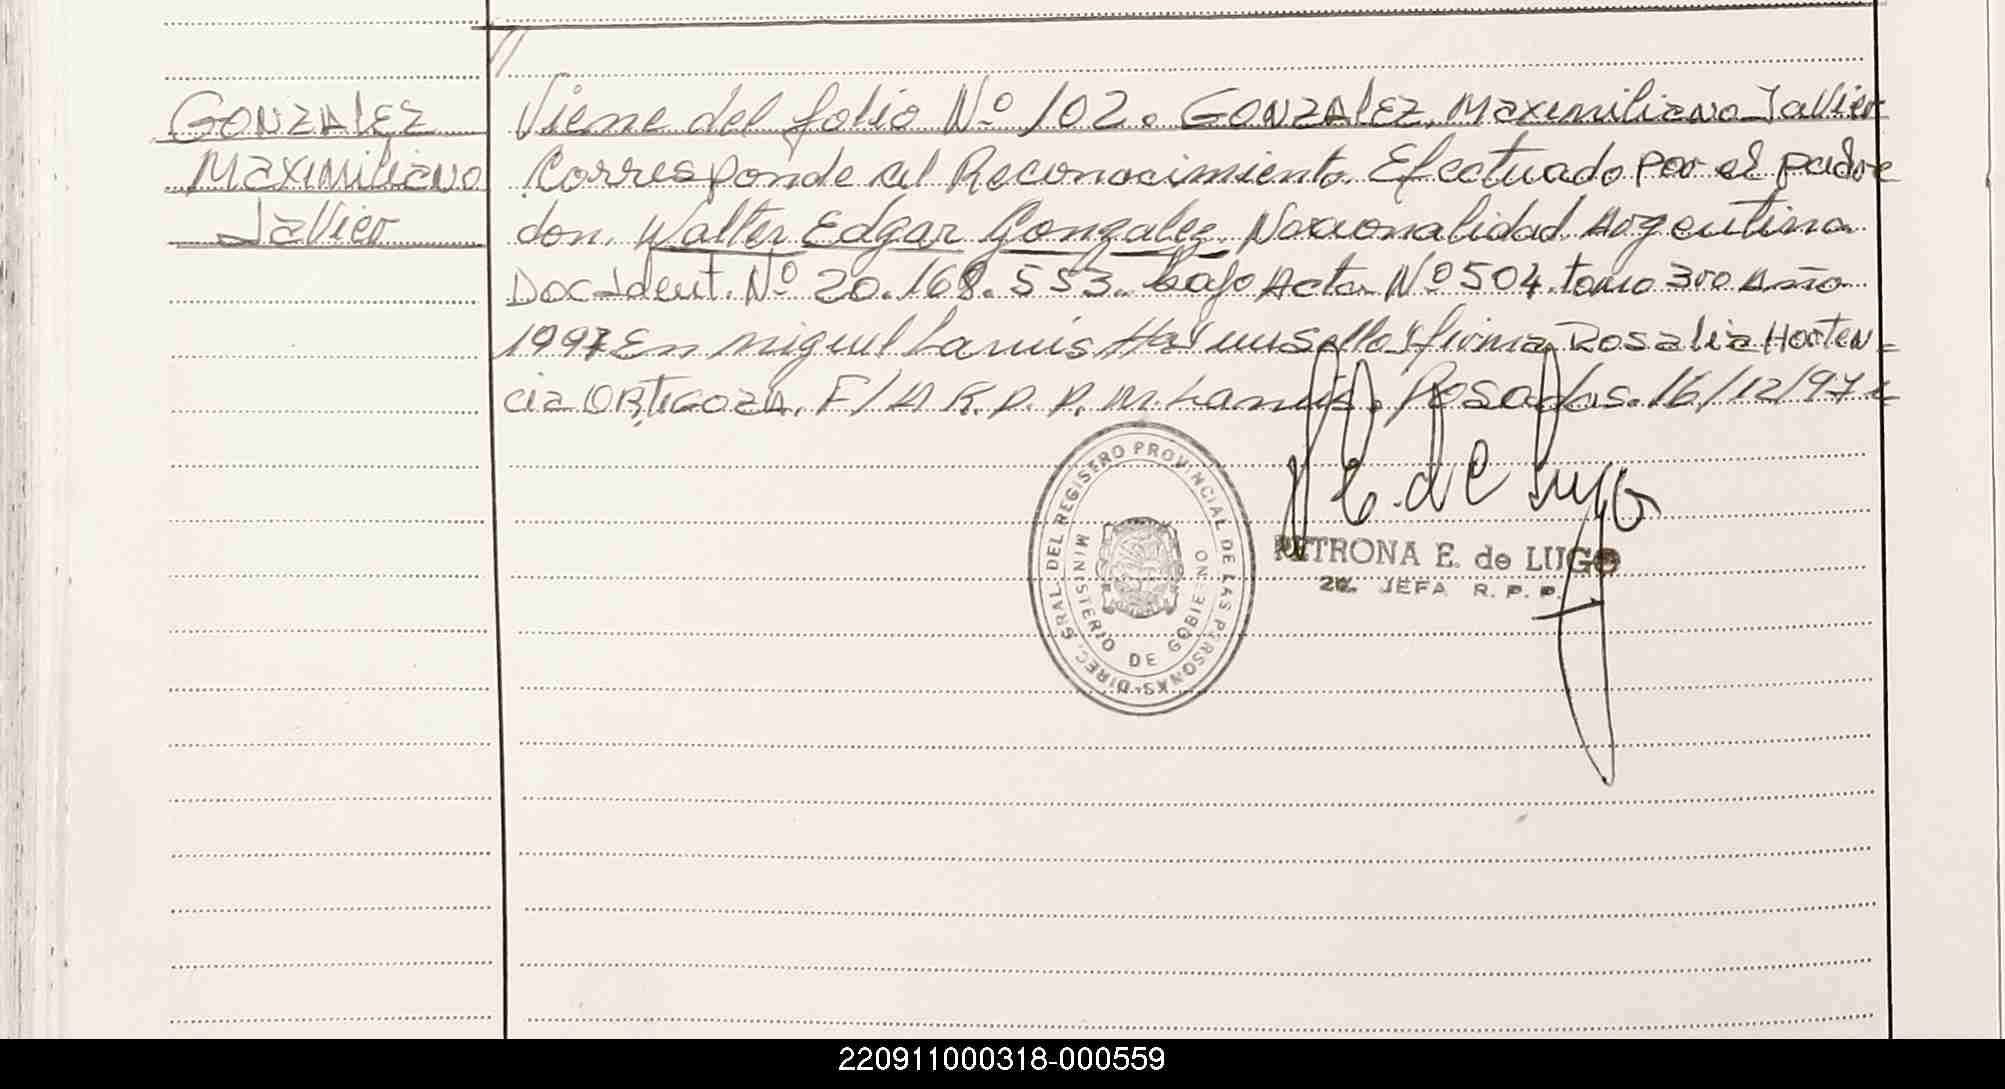 GONZALEZ
Maximiliano
Javier
//
Viene del folio Nº 102. GONZALEZ, Maximiliano Javier
Corresponde al Reconocimiento Efectuado por el padre
don. Walter Edgar Gonzalez, Nacionalidad Argentina
Doc Ident. Nº 20.168.553. bajo Acta Nº 504. tomo 3ro Año
1997 En miguel Lanus Hay un sello y firma Rosalia Horten-
cia ORTIGOZA. F/A R.P.P. M. Lanus. Posadas. 16/12/97
P.E. de Lugo
PETRONA E. de LUGO
2ª. JEFA R. P. P.
DIREC. GRAL. DEL REGISTRO PROVINCIAL DE LAS PERSONAS
MINISTERIO DE GOBIERNO
220911000318-000559